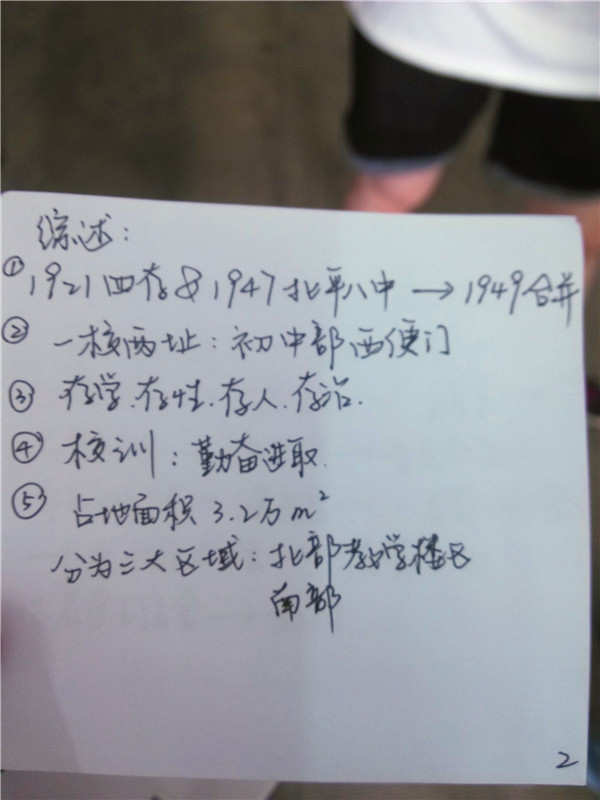 综述：
① 1921四存&1947北平八中 → 1949合并
② 一校两址：初中部西便门
③ 存学.存性.存人.存治.
④ 校训：勤奋进取.
⑤ 占地面积 3.2万m²
分为三大区域：北部教学楼区
南部
2